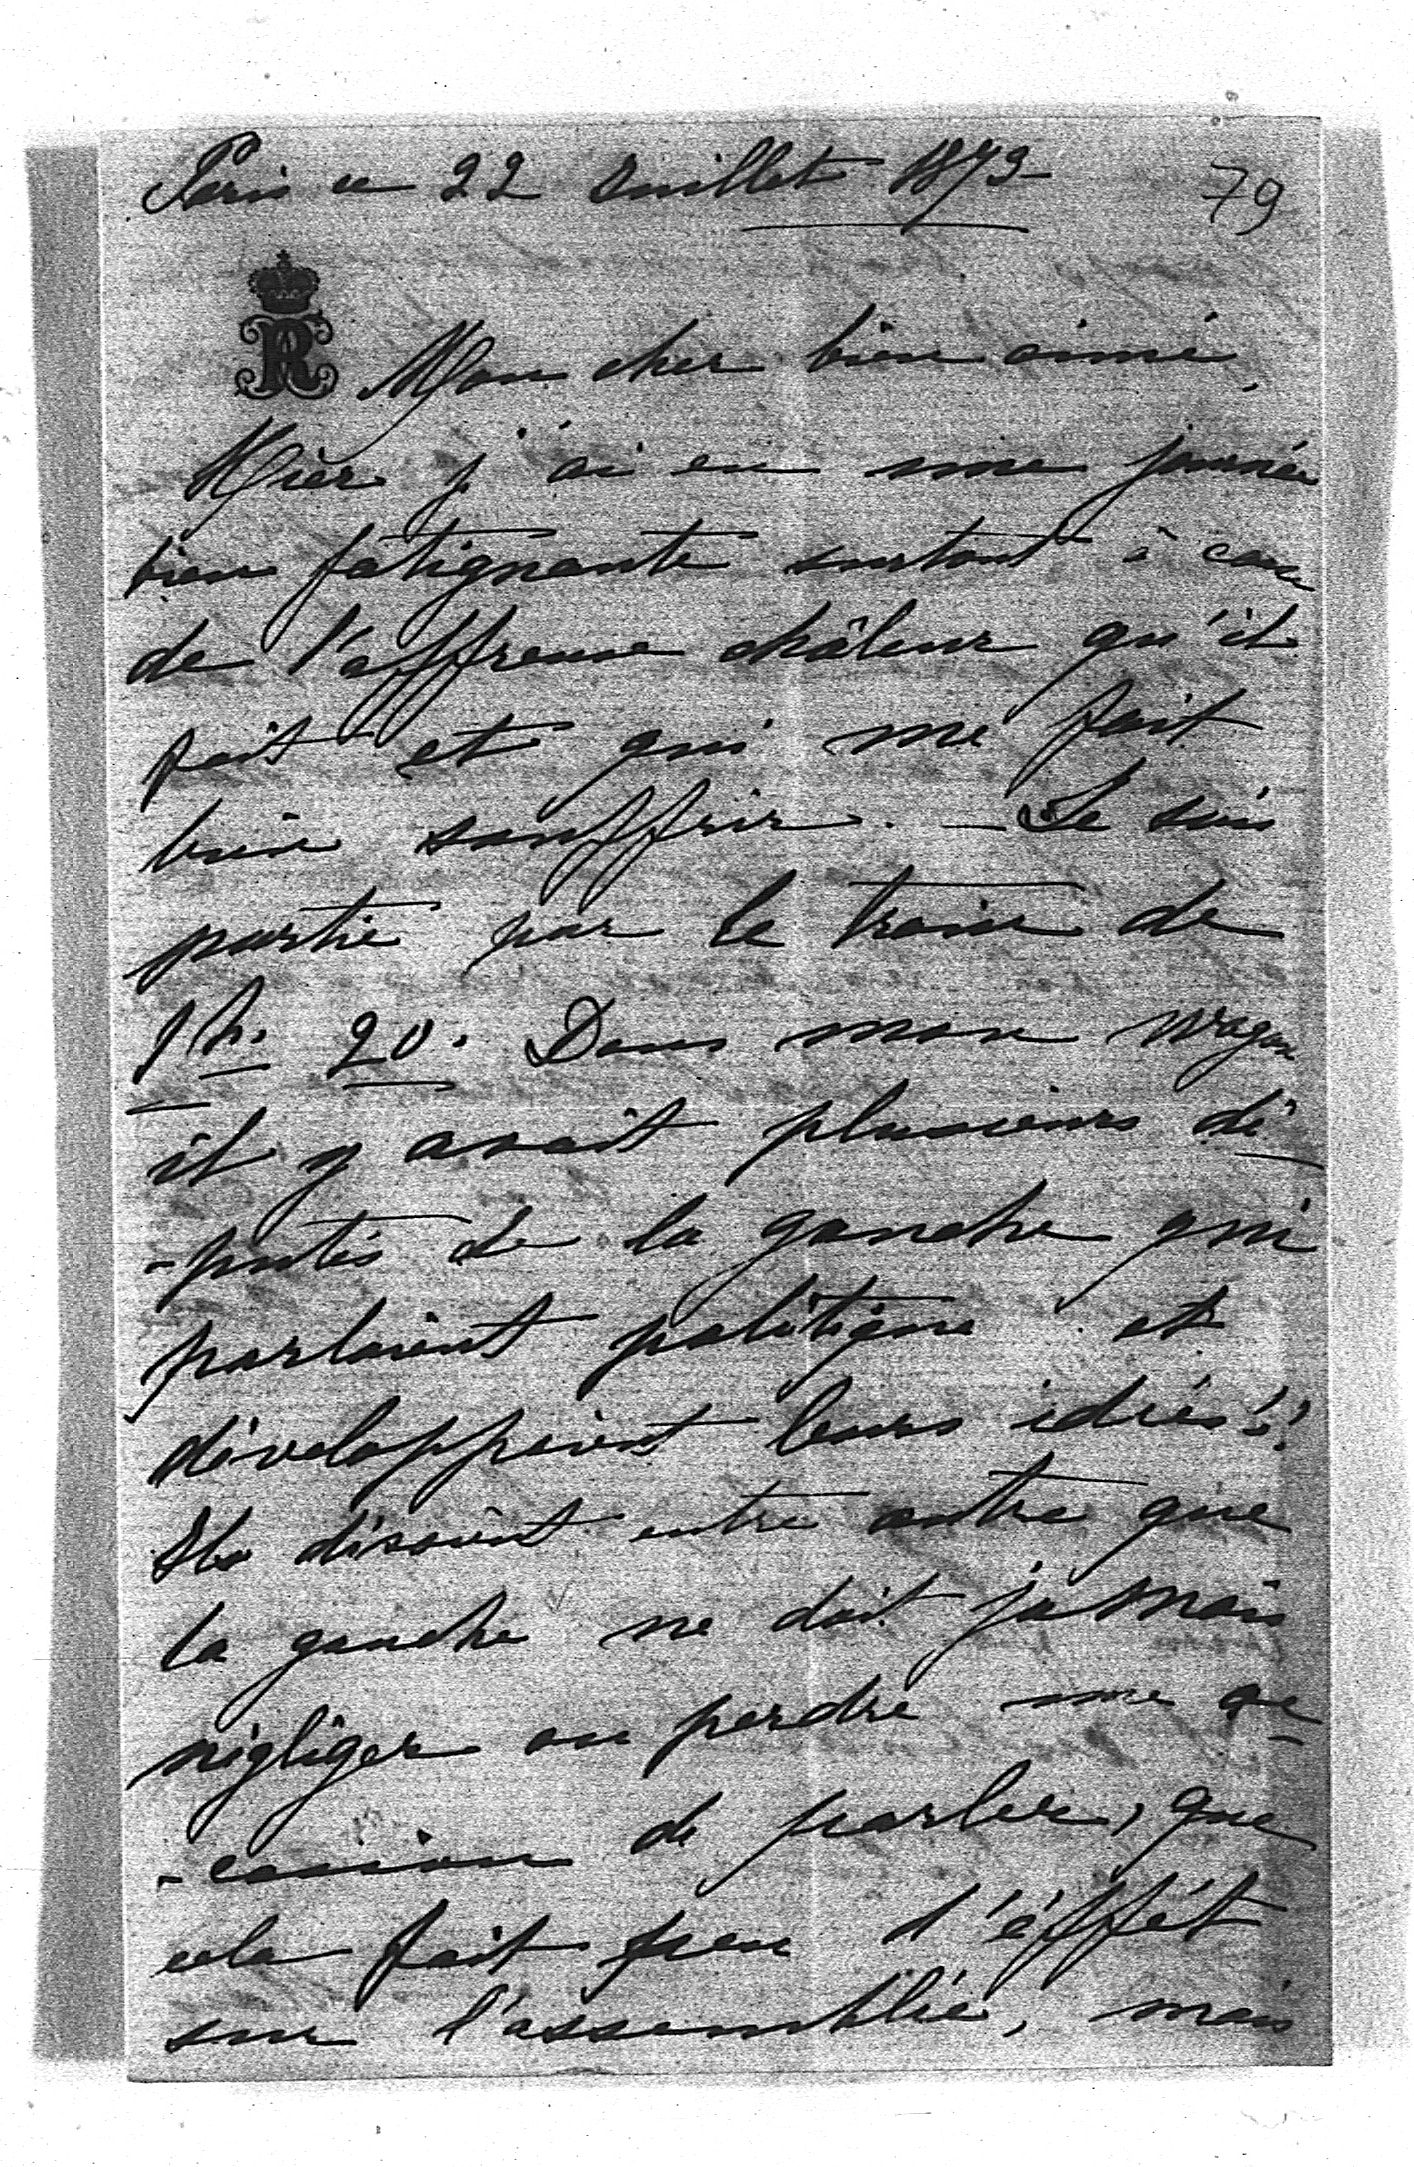 Paris ce 22 Juillet 1873
79
R
Mon cher bien aimé,
Hièr j'ai eu une journée
bien fatignante surtout à cause
de l'affreuse châleur qu'il
fait et qui me fait
bien souffrir. — Je suis
partie par le train de
1 h. 20. Dans mon wagon
il y avait plusieurs dé-
-putés de la gauche qui
parlaient politique et
développaient leurs idées!
Ils disaient entre autre que
la gauche ne doit jamais
négliger ou perdre une oc-
-casion de parler, que
cela fait peu d'éffét
sur l'assemblée, mais